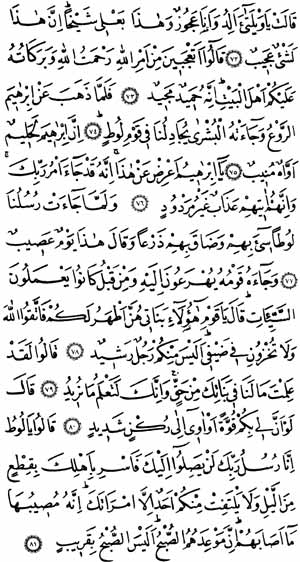 قَالَتْ يَاوَيْلَتٰٓى ءَاَلِدُ وَاَنَا۬ عَجُوزٌ وَهٰذَا بَعْلٖى شَيْخًاۜ اِنَّ هٰذَا
لَشَيْءٌ عَجٖيبٌ ﴿٧٢﴾ قَالُٓوا اَتَعْجَبٖينَ مِنْ اَمْرِ اللّٰهِ رَحْمَتُ اللّٰهِ وَبَرَكَاتُهُ
عَلَيْكُمْ اَهْلَ الْبَيْتِۜ اِنَّهُ حَمٖيدٌ مَجٖيدٌ ﴿٧٣﴾ فَلَمَّا ذَهَبَ عَنْ اِبْرٰهٖيمَ
الرَّوْعُ وَجَٓاءَتْهُ الْبُشْرٰى يُجَادِلُنَا فٖى قَوْمِ لُوطٍۜ ﴿٧٤﴾ اِنَّ اِبْرٰهٖيمَ لَحَلٖيمٌ
اَوَّاهٌ مُنٖيبٌ ﴿٧٥﴾ يَٓا اِبْرٰهٖيمُ اَعْرِضْ عَنْ هٰذَاۚ اِنَّهُ قَدْ جَٓاءَ اَمْرُ رَبِّكَۚ
وَاِنَّهُمْ اٰتٖيهِمْ عَذَابٌ غَيْرُ مَرْدُودٍ ﴿٧٦﴾ وَلَمَّا جَٓاءَتْ رُسُلُنَا
لُوطًا سٖٓىءَ بِهِمْ وَضَاقَ بِهِمْ ذَرْعًا وَقَالَ هٰذَا يَوْمٌ عَصٖيبٌ
﴿٧٧﴾ وَجَٓاءَهُ قَوْمُهُ يُهْرَعُونَ اِلَيْهِ وَمِنْ قَبْلُ كَانُوا يَعْمَلُونَ
السَّيِّـَٔاتِۜ قَالَ يَا قَوْمِ هٰٓؤُ۬لَٓاءِ بَنَاتٖى هُنَّ اَطْهَرُ لَكُمْ فَاتَّقُوا اللّٰهَ
وَلَا تُخْزُونِ فٖى ضَيْفٖىۜ اَلَيْسَ مِنْكُمْ رَجُلٌ رَشٖيدٌ ﴿٧٨﴾ قَالُوا لَقَدْ
عَلِمْتَ مَا لَنَا فٖى بَنَاتِكَ مِنْ حَقٍّۚ وَاِنَّكَ لَتَعْلَمُ مَا نُرٖيدُ ﴿٧٩﴾ قَالَ
لَوْ اَنَّ لٖى بِكُمْ قُوَّةً اَوْ اٰوٖٓى اِلٰى رُكْنٍ شَدٖيدٍ ﴿٨٠﴾ قَالُوا يَا لُوطُ
اِنَّا رُسُلُ رَبِّكَ لَنْ يَصِلُٓوا اِلَيْكَ فَاَسْرِ بِاَهْلِكَ بِقِطْعٍ
مِنَ الَّيْلِ وَلَا يَلْتَفِتْ مِنْكُمْ اَحَدٌ اِلَّا امْرَاَتَكَۜ اِنَّهُ مُصٖيبُهَا
مَٓا اَصَابَهُمْۜ اِنَّ مَوْعِدَهُمُ الصُّبْحُۜ اَلَيْسَ الصُّبْحُ بِقَرٖيبٍ ﴿٨١﴾